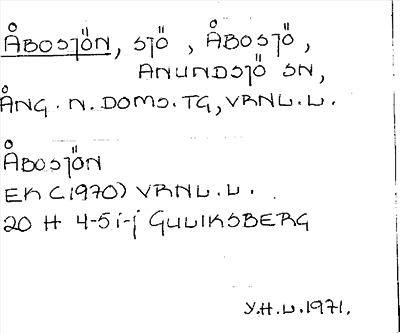 ÅBOSJÖN, SJÖ, ÅBOSJÖ,
ANUNDSJÖ SN,
ÅNG. N. DOMS. TG, VRNL.L.
ÅBOSJÖN
EK (1970) VRNL.L.
20 H 4-5 i-j GULIKSBERG
Y.H.L.1971.